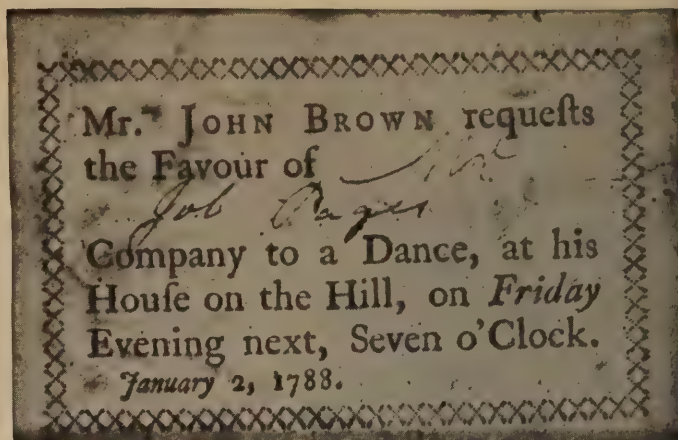 Mr. JOHN BROWN requeſts
the Favour of
Job
Company to a Dance, at his
Houſe on the Hill, on Friday
Evening next, Seven o'Clock.
January 2, 1788.